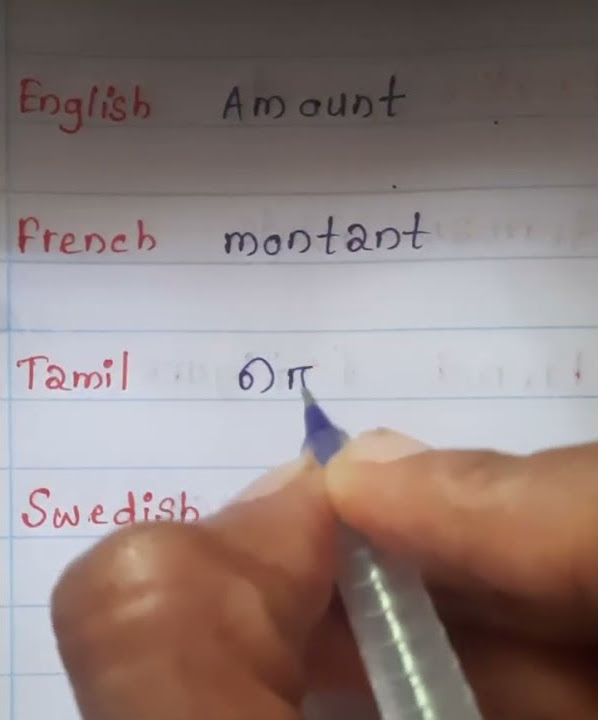 English Amount
French montant
Tamil
Swedish